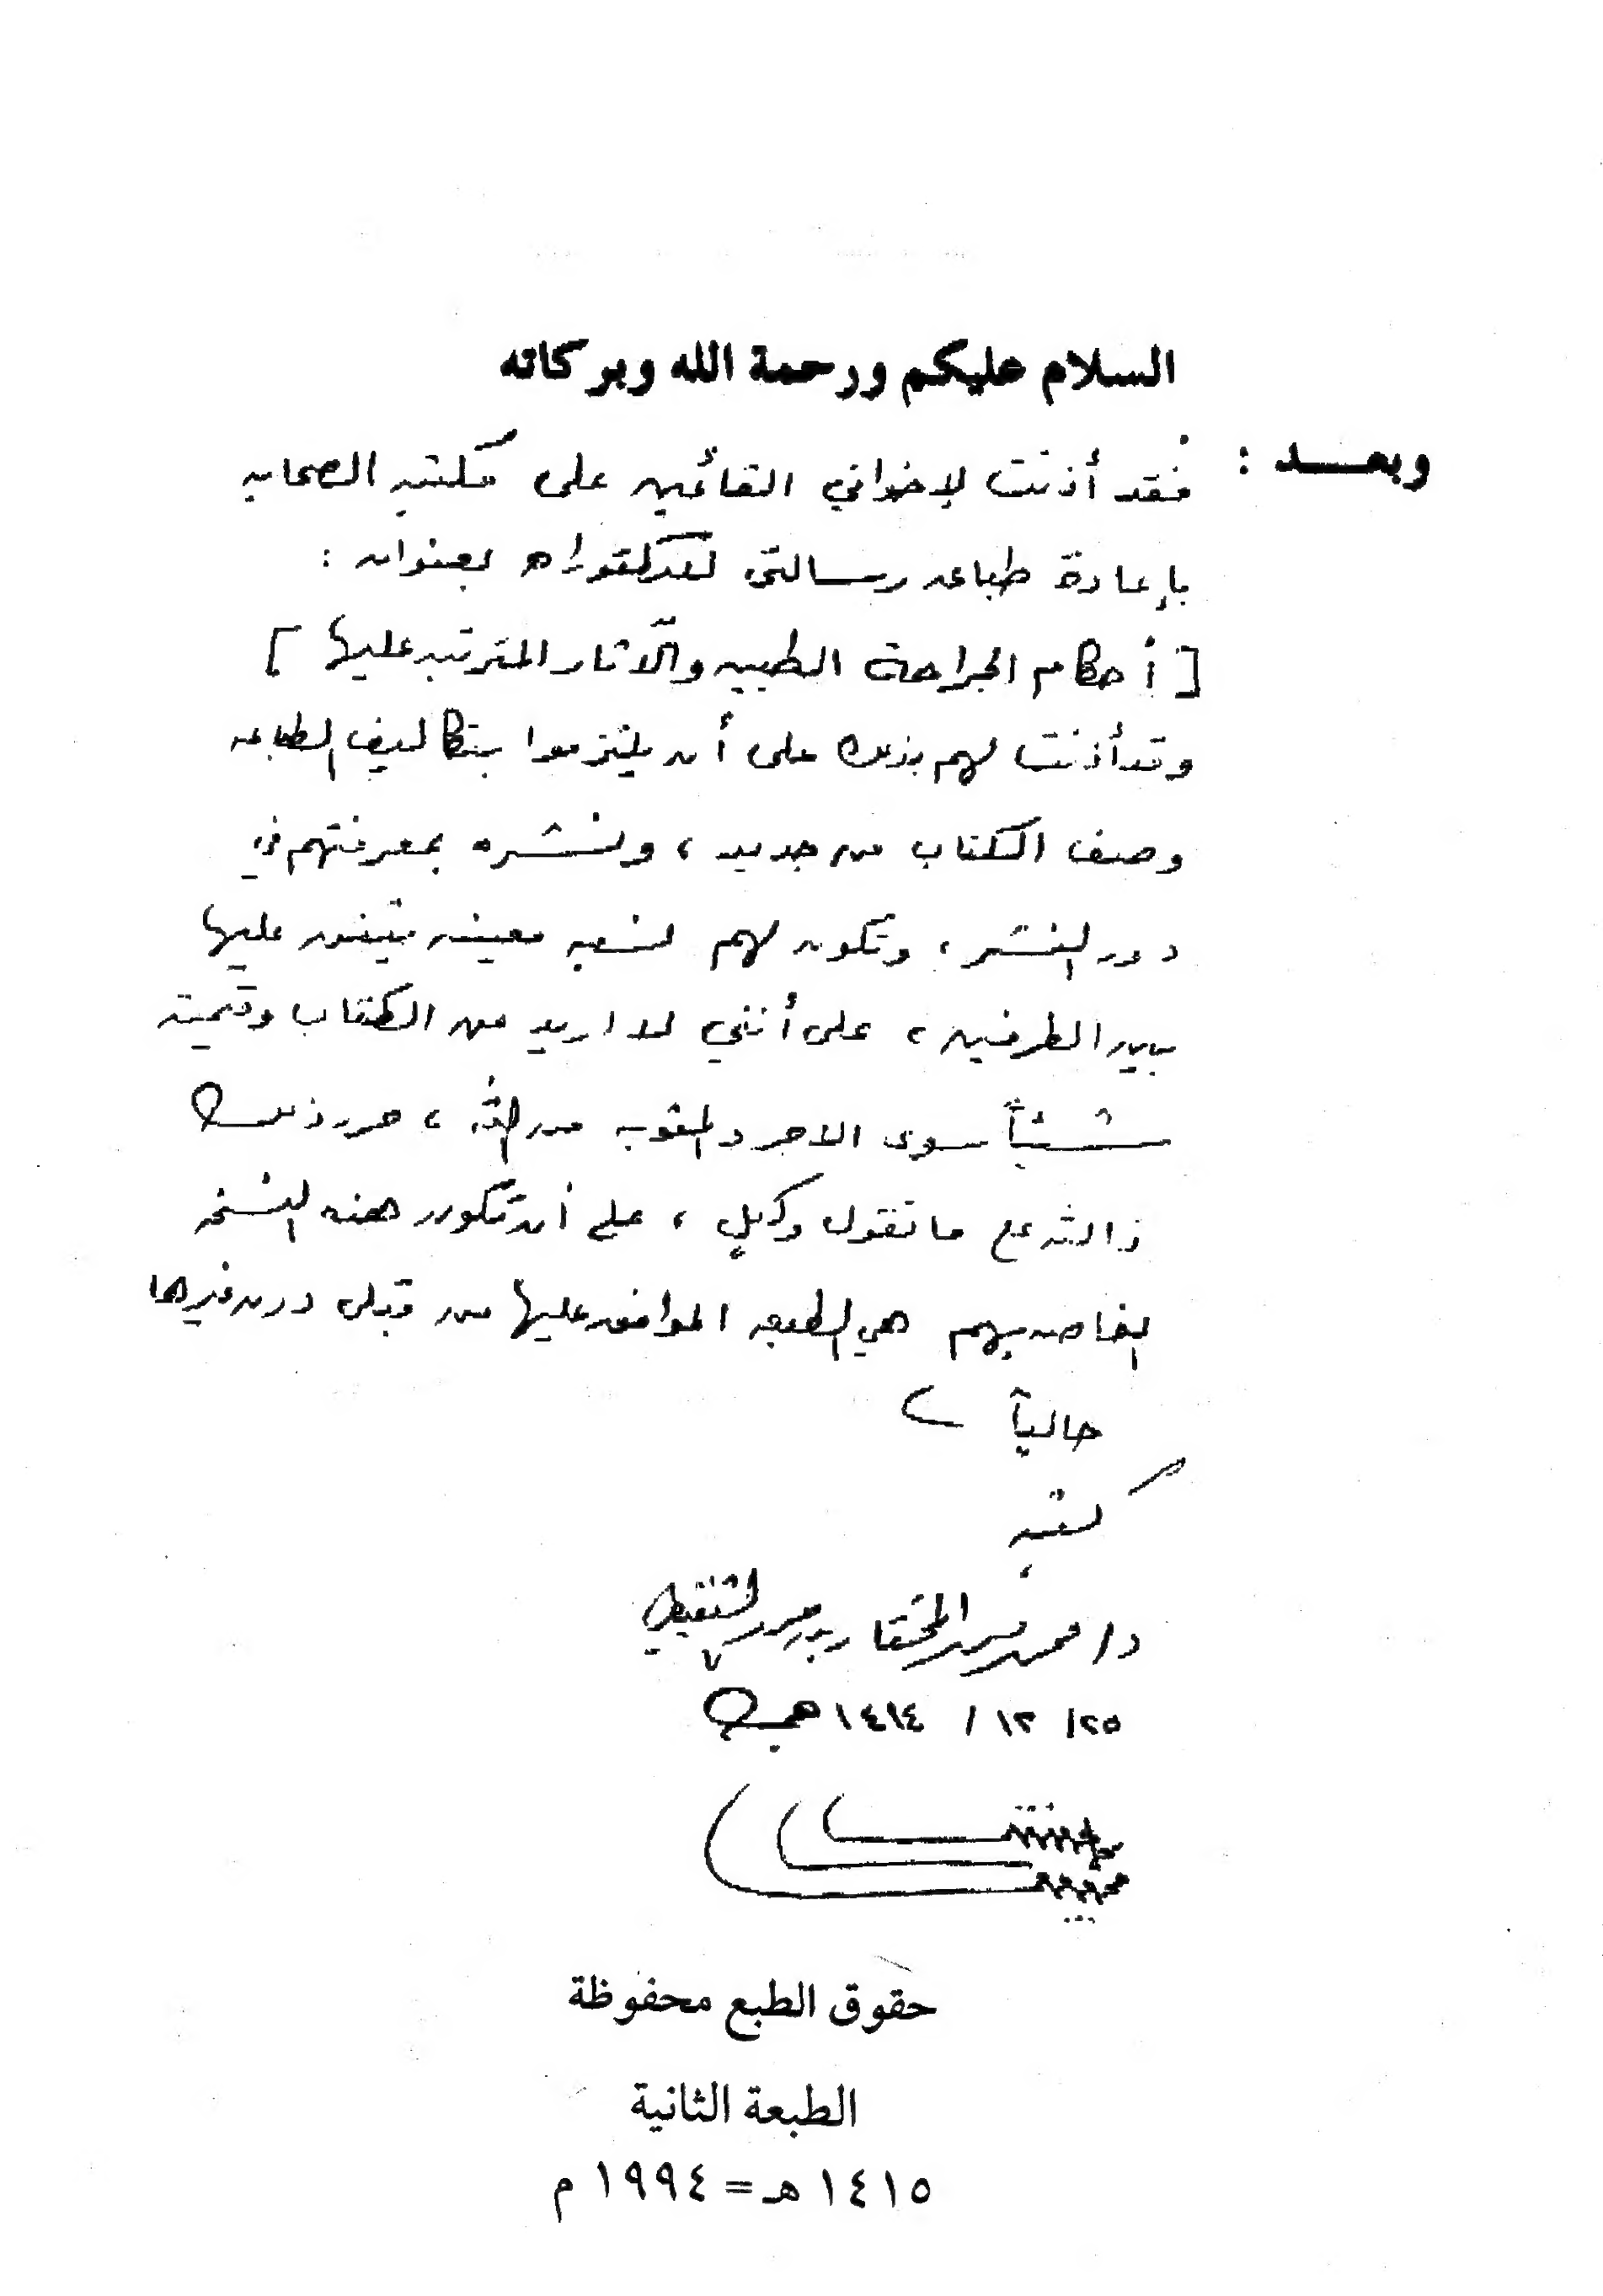 السلام عليكم ورحمة الله وبركاته
وبعـــد : فقد أذنت لإخواني القائمين على مكتبة الصحابه
بإعادة طباعه رسالتى للدكتوراه بعنوان :
[ أحكام الجراحة الطبيه والآثار المترتبه عليها ]
وقد أذنت لهم بذلك على أن يلتزموا بتكاليف الطباعه
وصف الكتاب من جديد ، ونشره بمعرفتهم في
دور النشر ، وتكون لهم نسبه معينه يتفق عليها
بين الطرفين ، على أنني لا اريد من الكتاب وقيمته
شيئاً سوى الاجر والمثوبه من الله ، حرر ذلك
والله على ما نقول وكيل ، على أن تكون هذه النسخه
الخاصه بهم هي الطبعه الموافق عليها من قبلى دون غيرها
حالياً
كتبه
د/ محمد بن محمد المختار بن محمد الشنقيطي
٢٥/ ١٢ / ١٤١٤ هـ
حقوق الطبع محفوظة
الطبعة الثانية
١٤١٥ هـ = ١٩٩٤ م